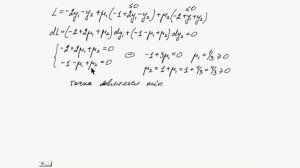 ≤0 ≤0
L = -2y₁ - y₂ + μ₁(-1 + 2y₁ - y₂) + μ₂(-2 + y₁ + y₂)
dL = (-2 + 2μ₁ + μ₂)dy₁ + (-1 - μ₁ + μ₂)dy₂ = 0
{ -2 + 2μ₁ + μ₂ = 0
-1 - μ₁ + μ₂ = 0
⊖ -1 + 3μ₁ = 0 μ₁ = 1/3 ≥ 0
μ₂ = 1 + μ₁ = 1 + 1/3 = 4/3 ≥ 0
точка является min.